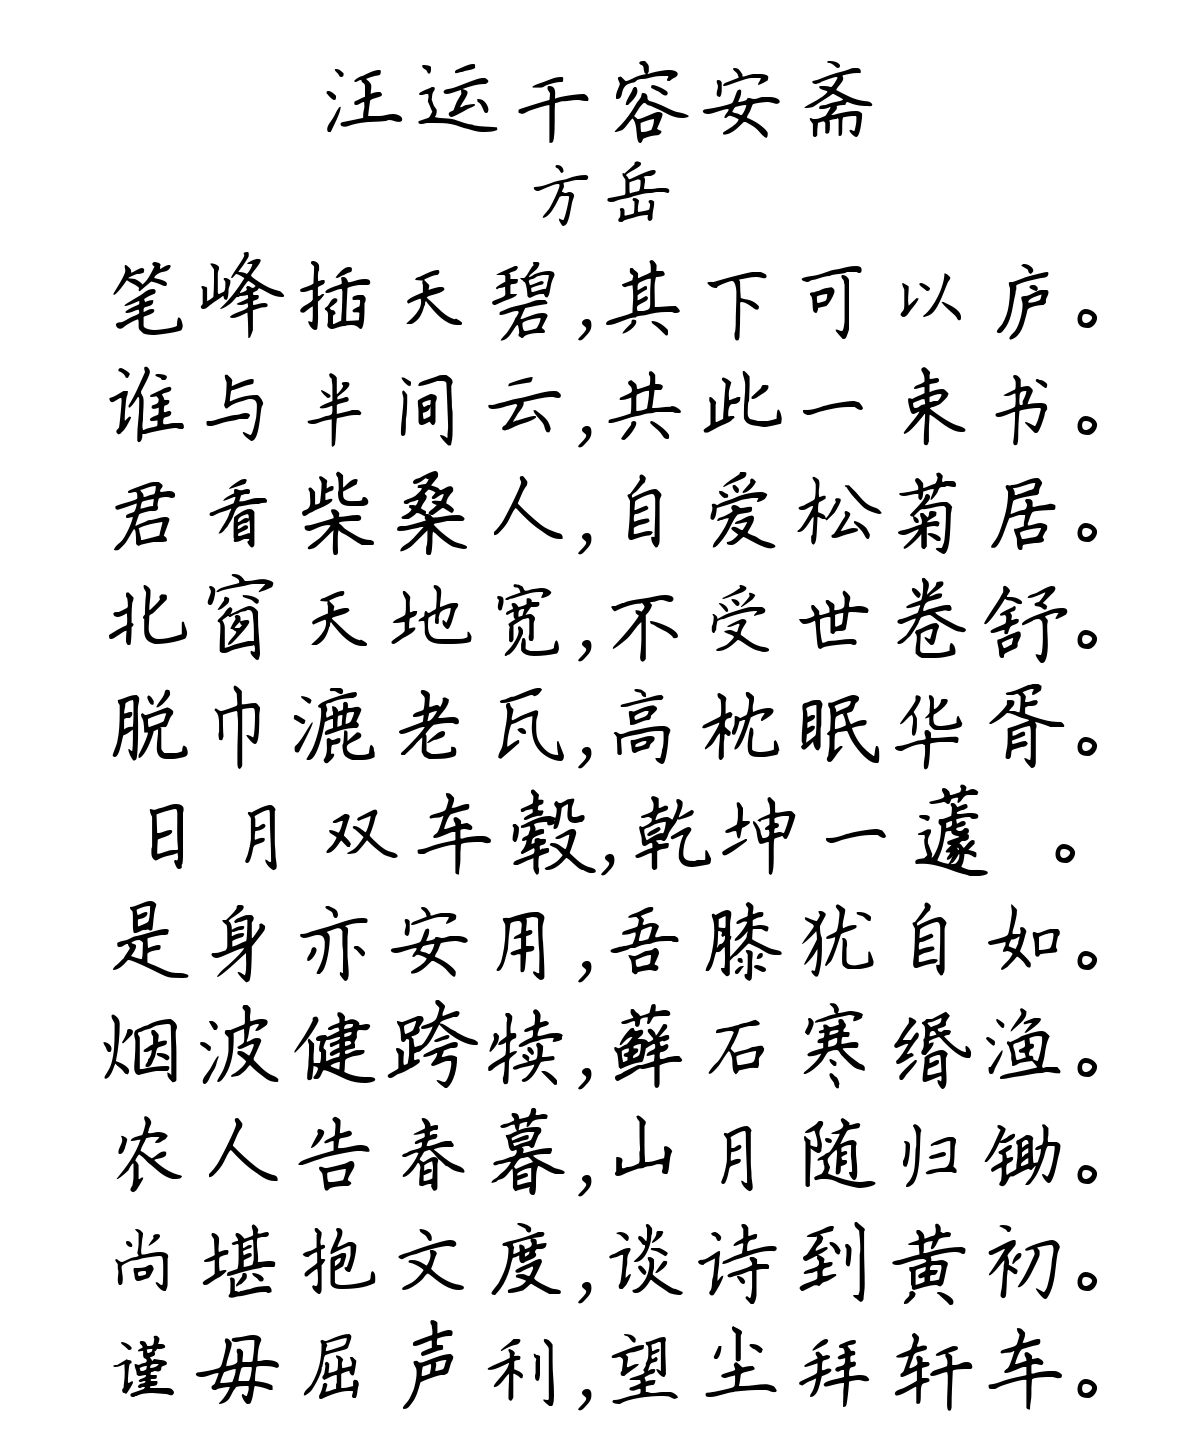 汪运干容安斋
方岳
笔峰插天碧,其下可以庐。
谁与半间云,共此一束书。
君看柴桑人,自爱松菊居。
北窗天地宽,不受世卷舒。
脱巾漉老瓦,高枕眠华胥。
日月双车毂,乾坤一蘧。
是身亦安用,吾膝犹自如。
烟波健跨犊,藓石寒缗渔。
农人告春暮,山月随归锄。
尚堪抱文度,谈诗到黄初。
谨毋屈声利,望尘拜轩车。